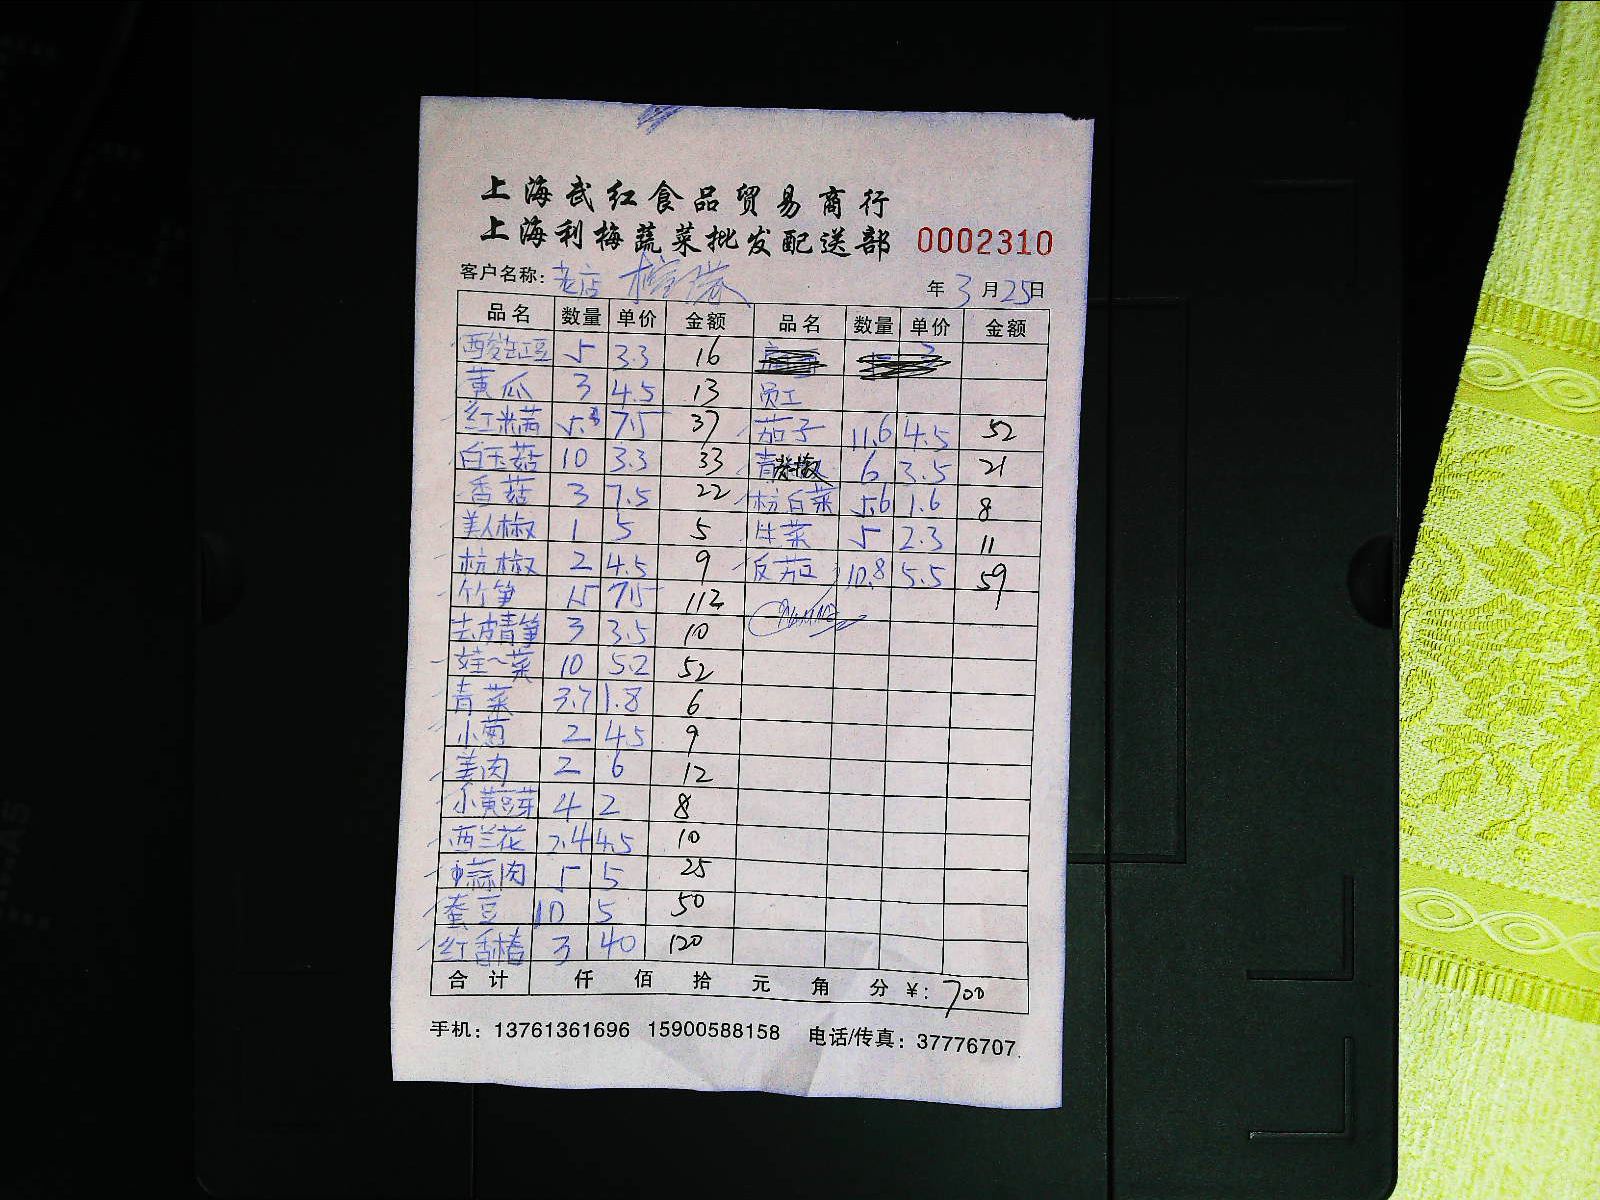 上海武红食品贸易商行
上海利梅蔬菜批发配送部 0002310
客户名称: 老店 年 3 月 25 日
品名 数量 单价 金额 品名 数量 单价 金额
酸豇豆 5 3.3 16
黄瓜 3 4.5 13 员工
红米苋 5 7.5 37 茄子 11.6 4.5 52
白玉菇 10 3.3 33 青椒 6 3.5 21
香菇 3 7.5 22 杭白菜 5.6 1.6 8
美人椒 1 5 5 生菜 5 2.3 11
杭椒 2 4.5 9 反茄 10.8 5.5 59
竹笋 15 7.5 112
去皮青笋 3 3.5 10
娃~菜 10 5.2 52
青菜 3.7 1.8 6
小葱 2 4.5 9
姜肉 2 6 12
小黄豆芽 4 2 8
西兰花 2.4 4.5 10
蒜肉 5 5 25
蚕豆 10 5 50
红香椿 3 40 120
合计 仟 佰 拾 元 角 分 ¥: 700
手机: 13761361696 15900588158 电话/传真: 37776707.